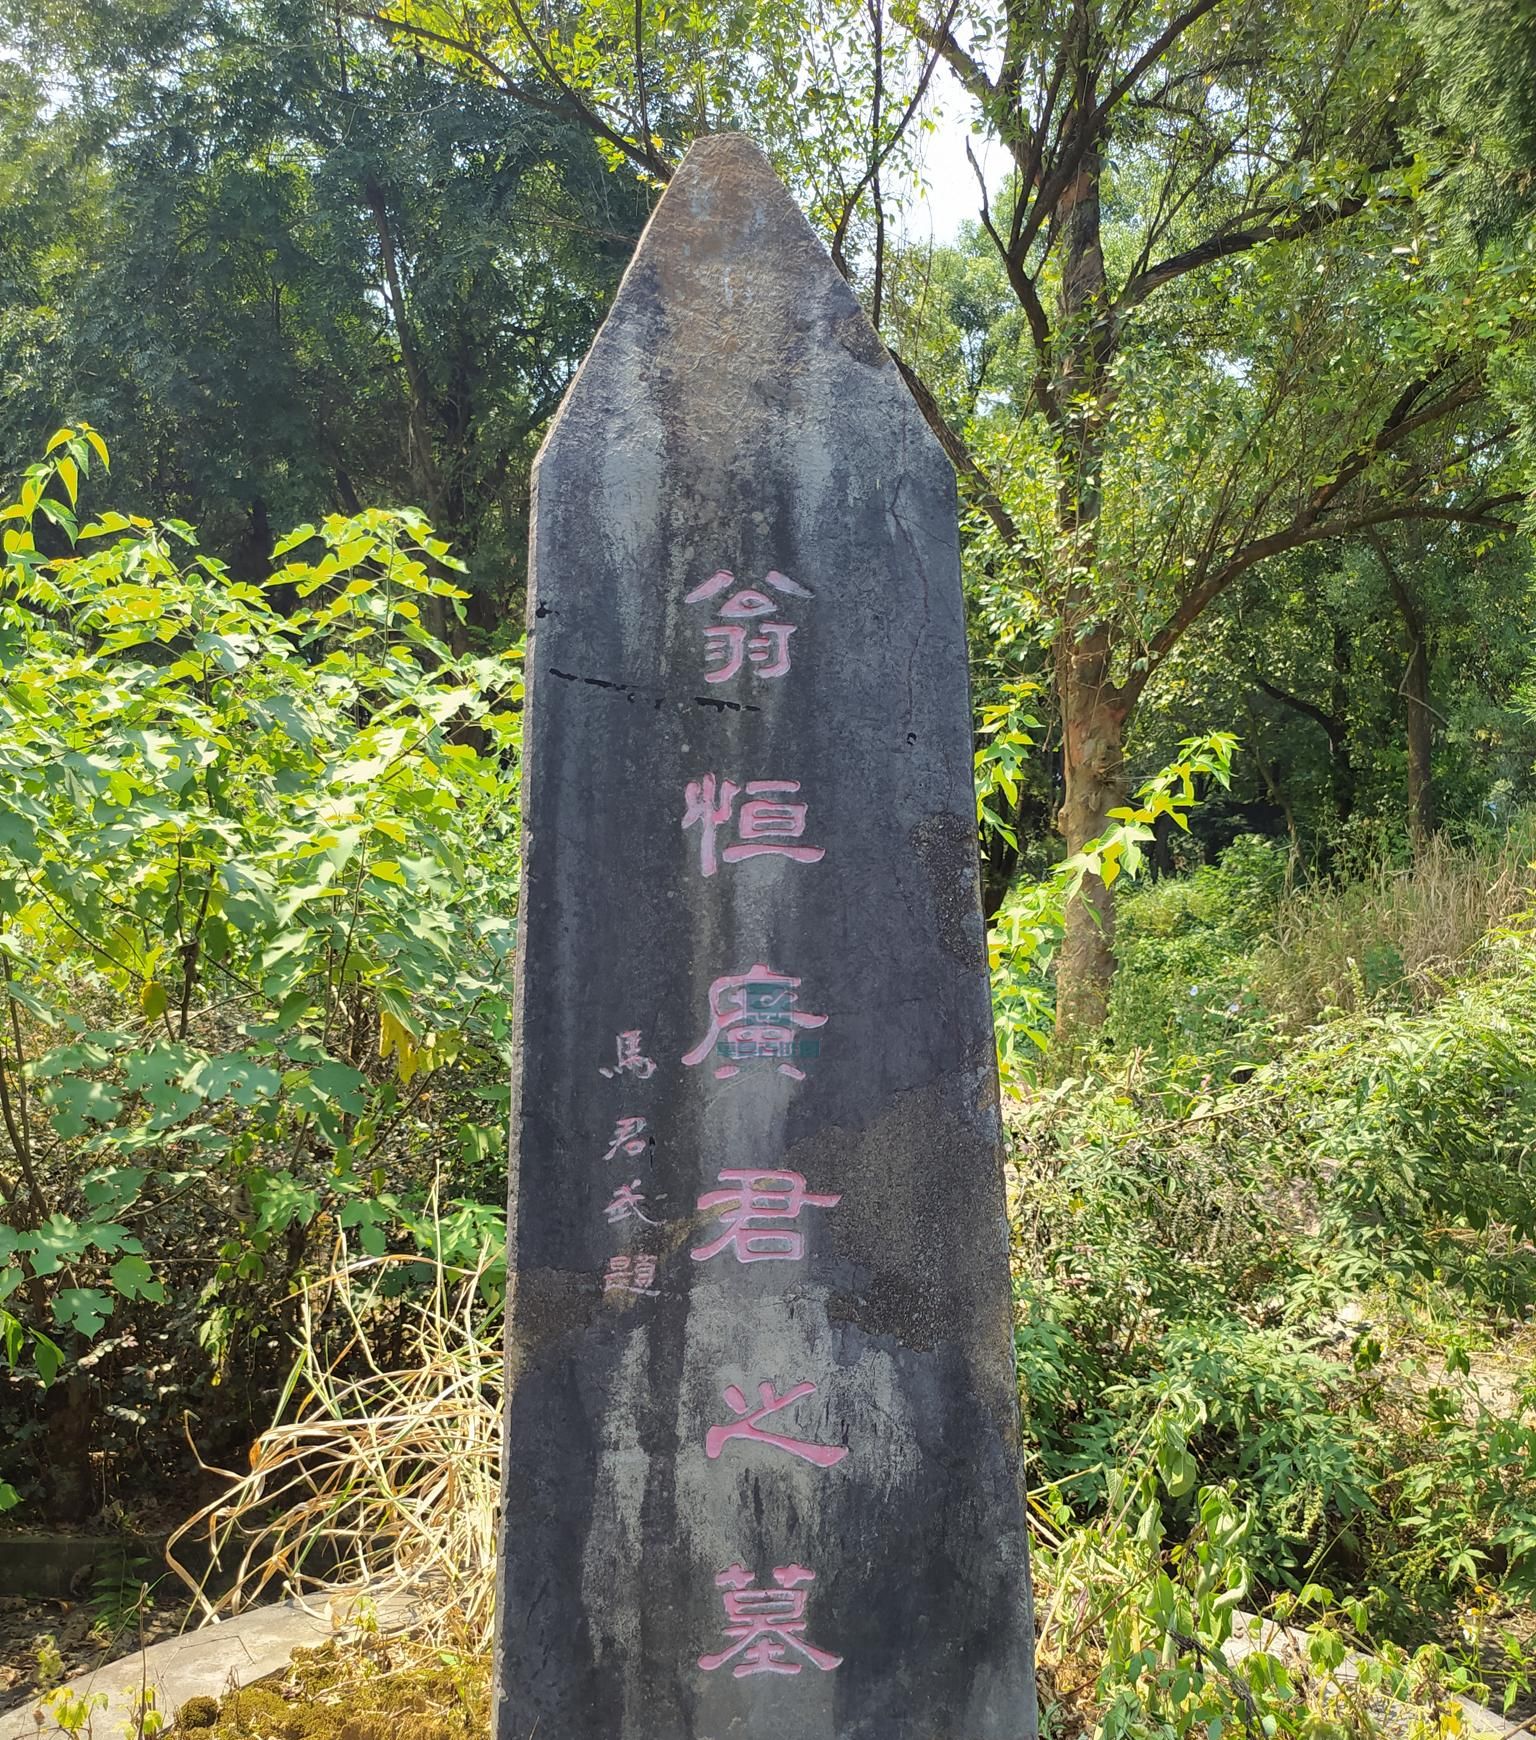 翁恒廣君之墓
馬君武題